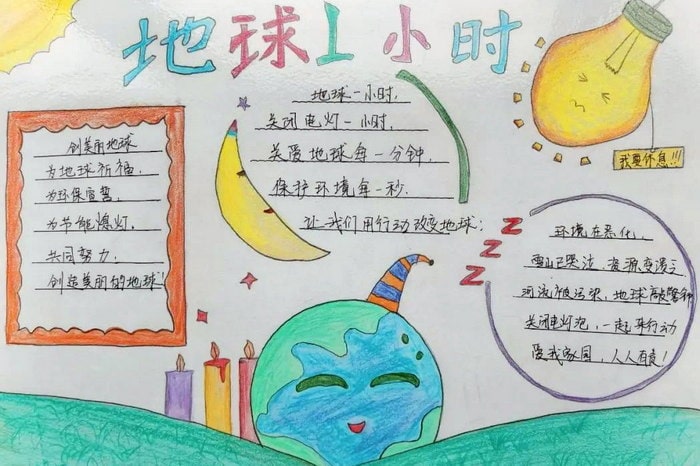 地球1小时
创美丽地球
为地球祈福,
为环保宣誓,
为节能熄灯。
共同努力,
创造美丽的地球!
地球一小时,
关闭电灯一小时,
关爱地球每一分钟,
保护环境每一秒.
让我们用行动改变地球:
我要休息!!!
z
z
z
环境在恶化,
雪山已哭泣,资源变漫
河流被污染,地球敲警钟
关闭电灯泡,一起来行动
爱我家园,人人有责!